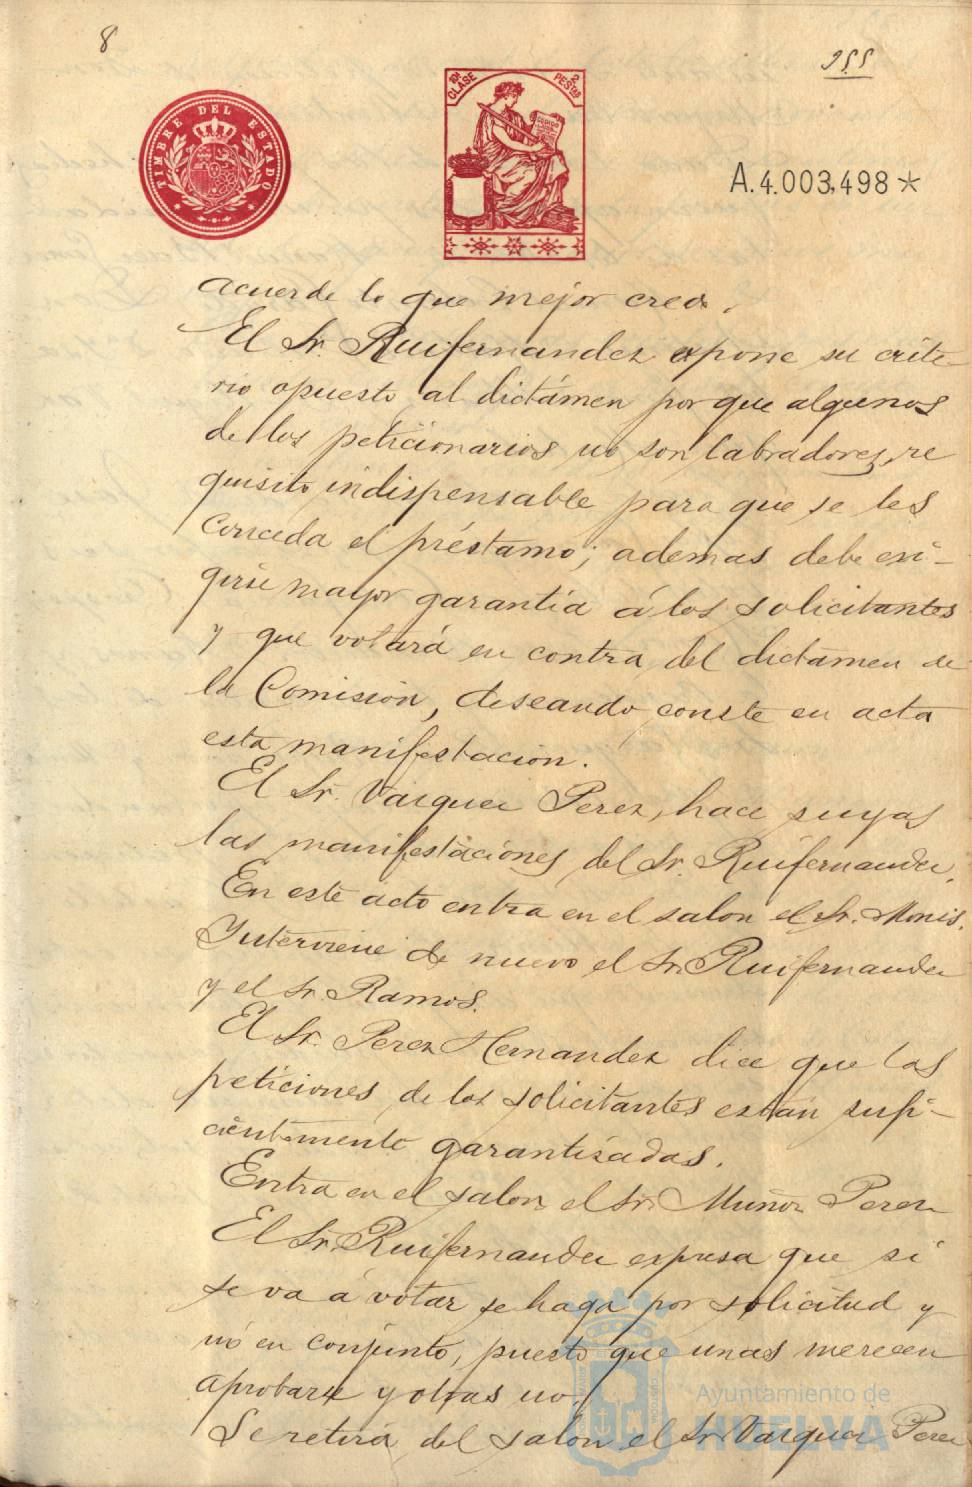 8
255
TIMBRE DEL ESTADO
10ª CLASE
2 PESTAS
A.4.003,498*
acuerde lo que mejor crea.
El Sr. Ruifernandez expone su crite-
rio opuesto al dictámen porque algunos
de los peticionarios no son labradores, re
quisito indispensable para que se les
conceda el préstamo; ademas debe exi-
girse mayor garantia á los solicitantes
y que votará en contra del dictamen de
la Comisión, deseando conste en acta
esta manifestacion.
El Sr. Vazquez Perez, hace suyas
las manifestaciones del Sr. Ruifernandez.
En este acto entra en el salon el Sr. Monis.
Interviene de nuevo el Sr. Ruifernandez
y el Sr. Ramos.
El Sr. Perez Hernandez dice que las
peticiones de los solicitantes están sufi-
cientemente garantizadas.
Entra en el salon el Sr. Muñoz Perez
El Sr. Ruifernandez expresa que si
se va á votar se haga por solicitud y
nó en conjunto, puesto que unas merecen
aprobarse y otras no.
Se retira del salon el Sr Vazquez Perez
Ayuntamiento de
HUELVA